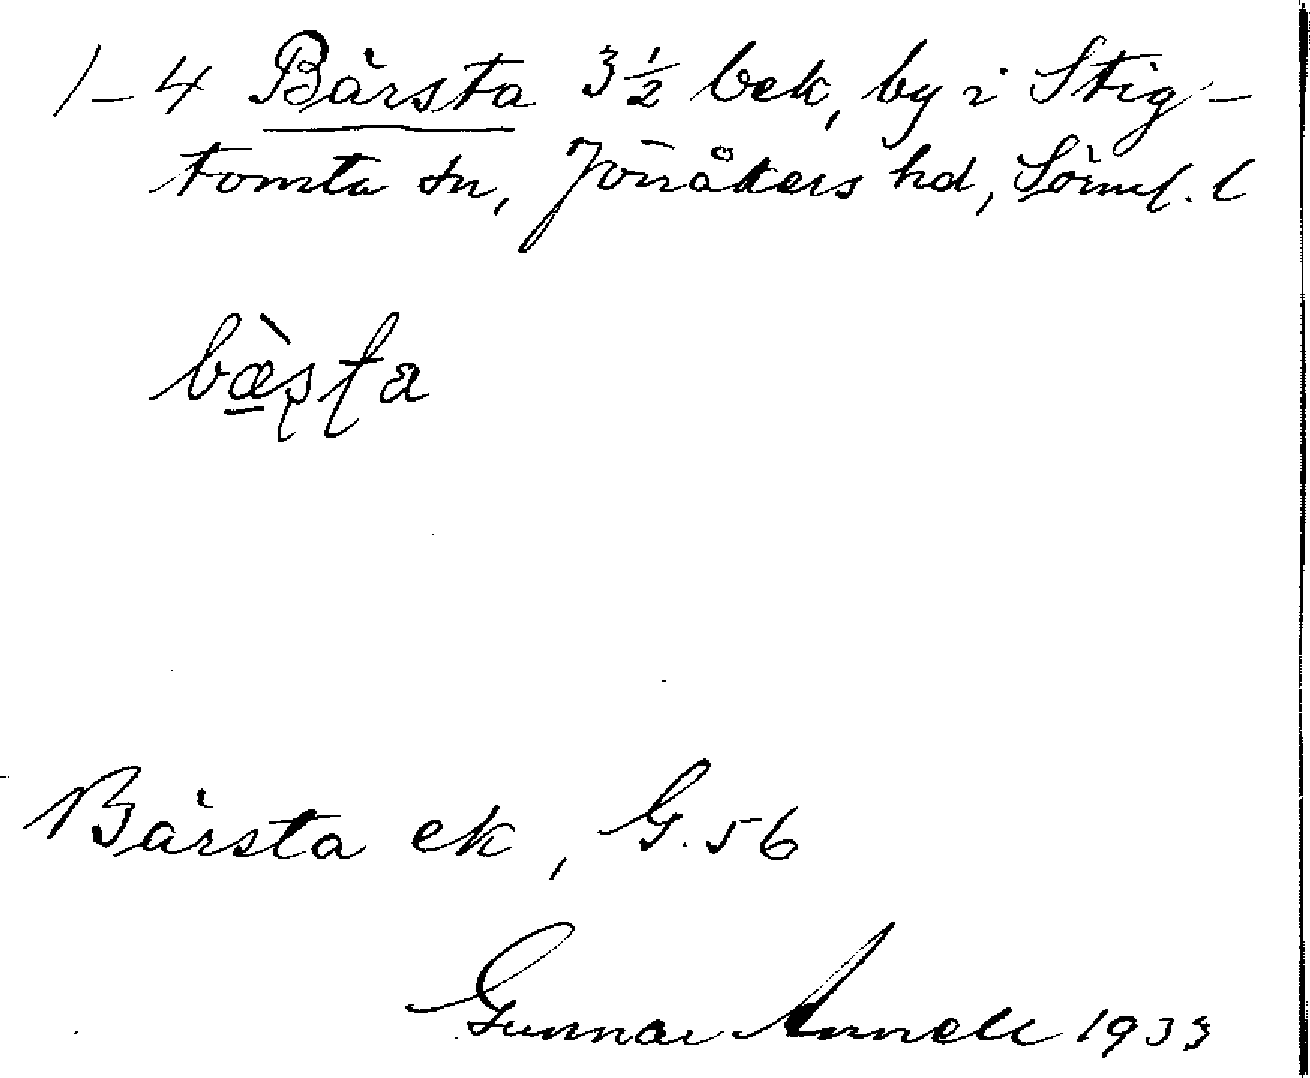 1–4 Bärsta 3½ bek, by i Stig-
tomta sn, Jönåkers hd, Söml. l
bæ̀ʂʈa
Bärsta ek, G. 56
Gunnar Annell 1933